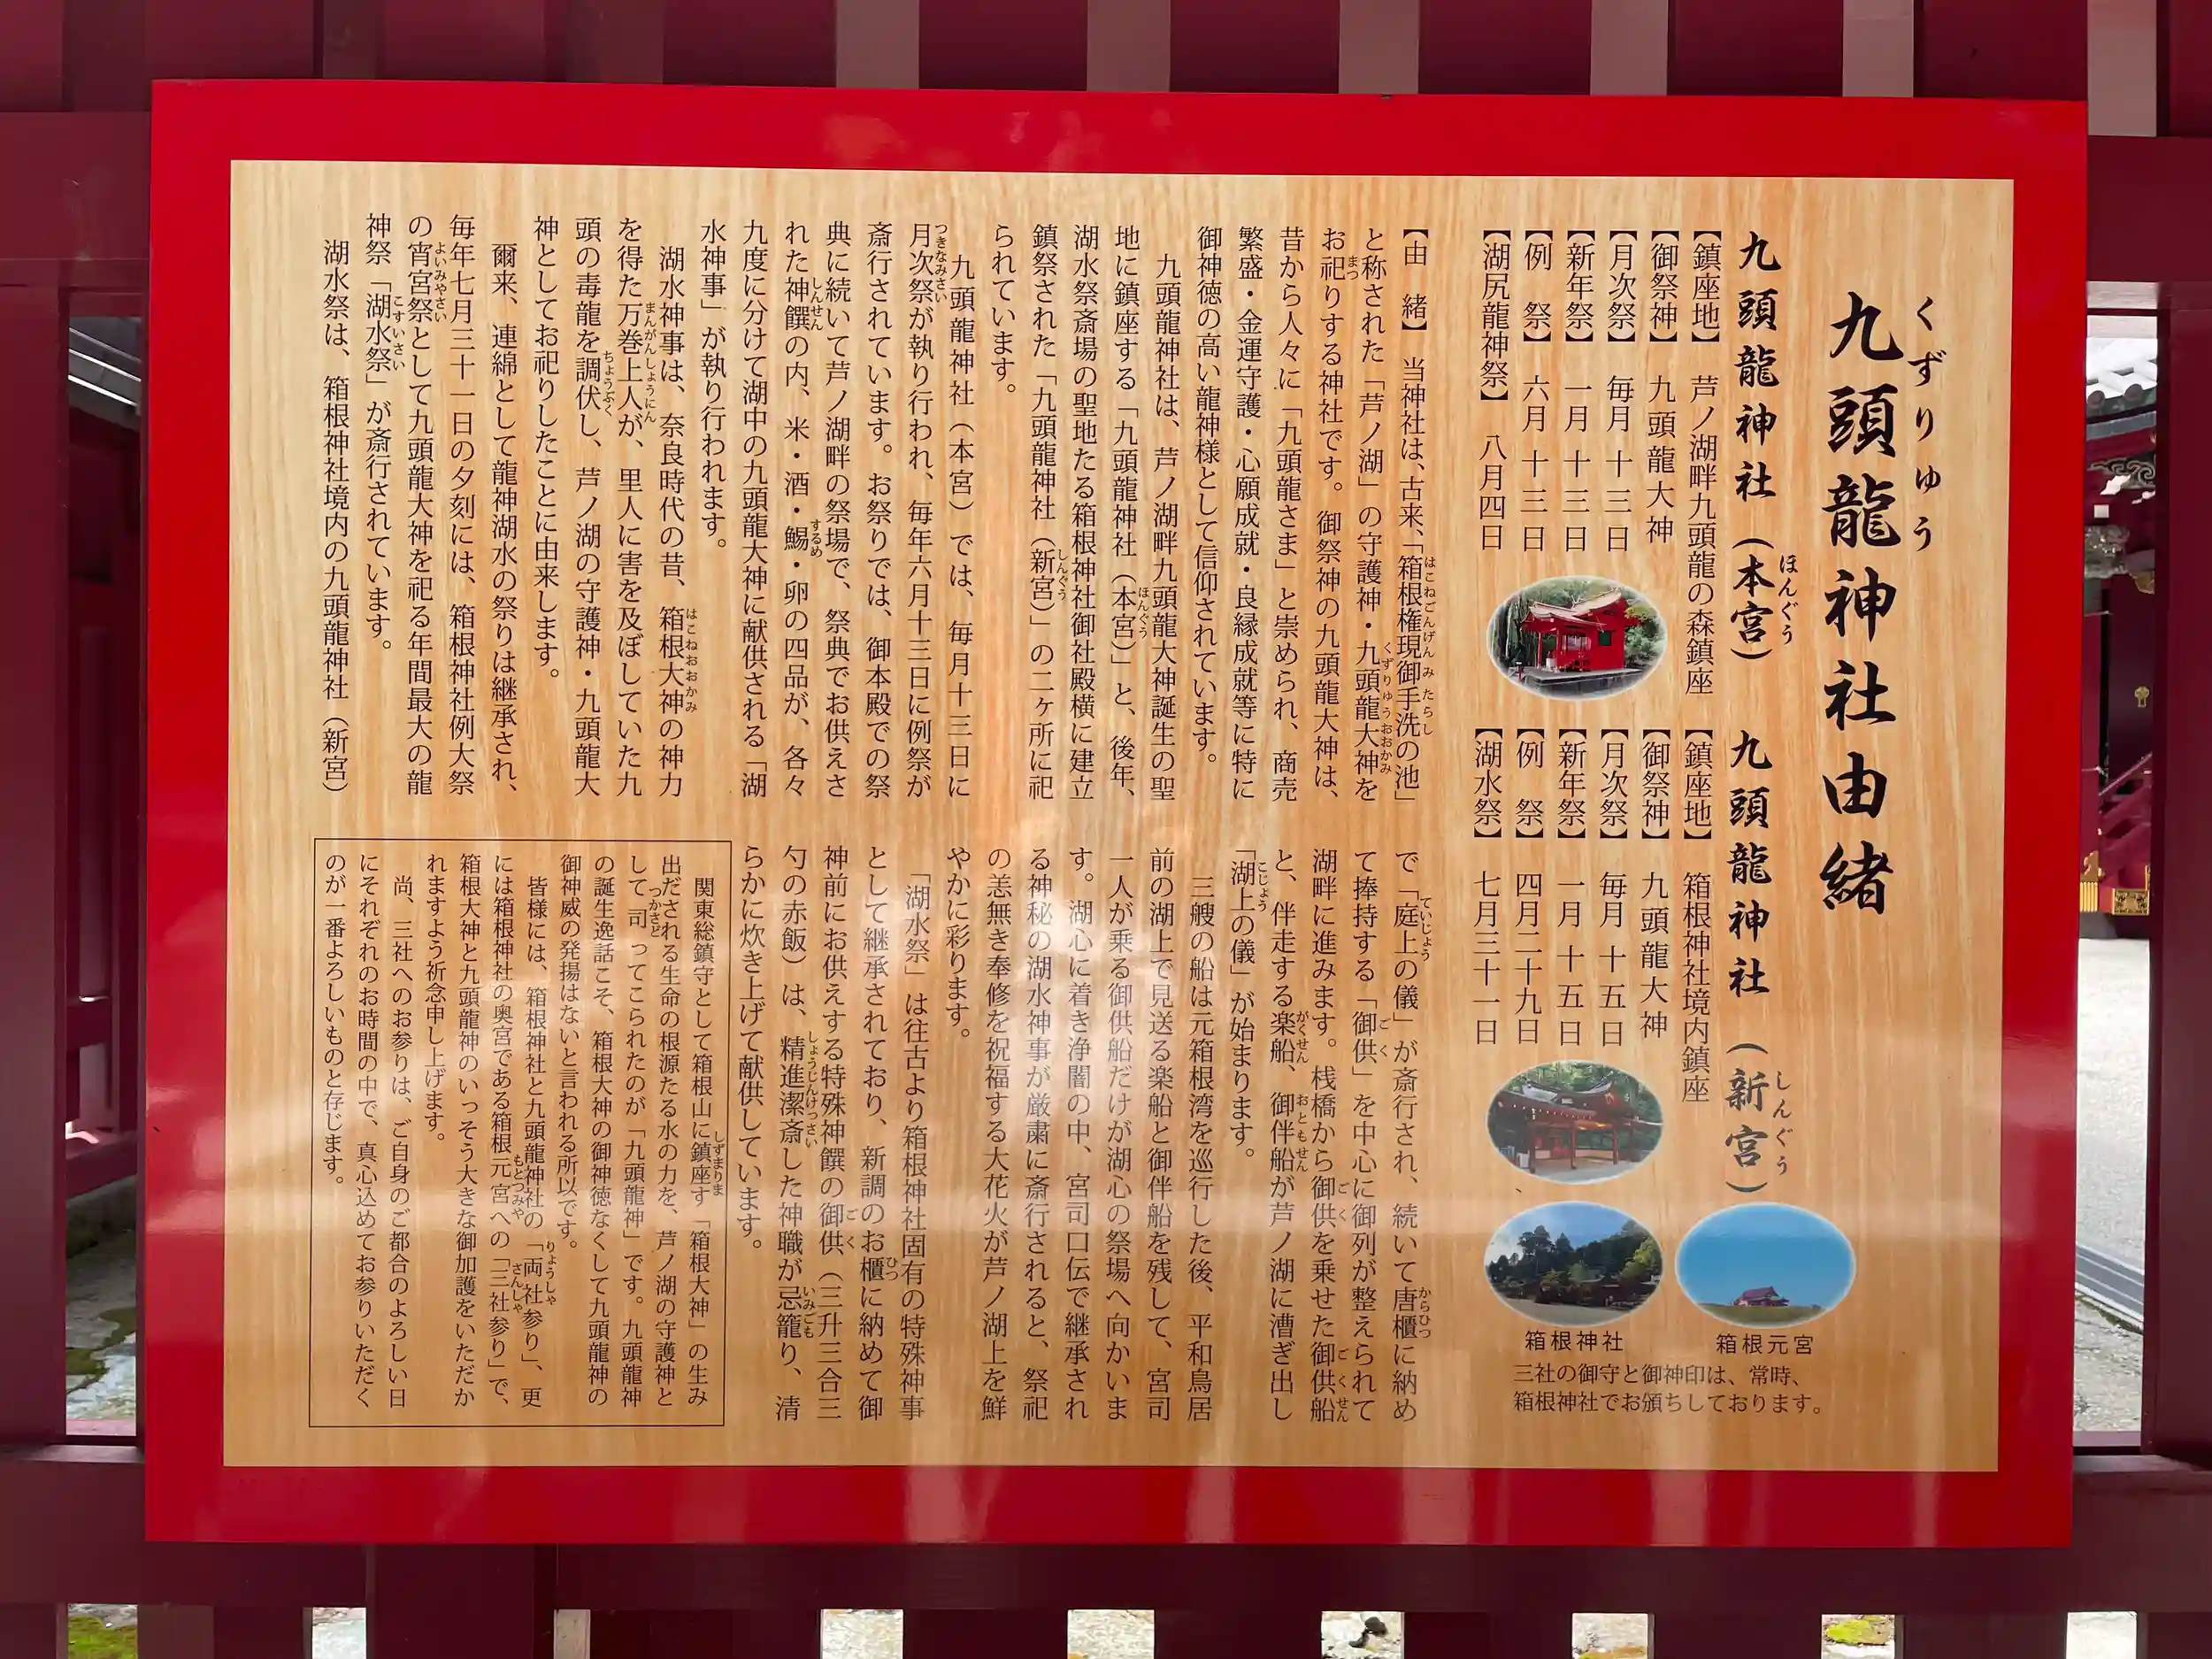 九頭龍神社由緒
くずりゅう
九頭龍神社（本宮）
ほんぐう
【鎮座地】 芦ノ湖畔九頭龍の森鎮座
【御祭神】 九頭龍大神
【月次祭】 毎月十三日
【新年祭】 一月十三日
【例 祭】 六月十三日
【湖尻龍神祭】 八月四日
九頭龍神社（新宮）
しんぐう
【鎮座地】 箱根神社境内鎮座
【御祭神】 九頭龍大神
【月次祭】 毎月十五日
【新年祭】 一月十五日
【例 祭】 四月二十九日
【湖水祭】 七月三十一日
箱根元宮
箱根神社
三社の御守と御神印は、常時、
箱根神社でお頒ちしております。
【由 緒】 当神社は、古来、「箱根権現御手洗の池」
はこねごんげんみたらし
と称された「芦ノ湖」の守護神・九頭龍大神を
くずりゅうおおかみ
お祀りする神社です。御祭神の九頭龍大神は、
まつ
昔から人々に「九頭龍さま」と崇められ、商売
繁盛・金運守護・心願成就・良縁成就等に特に
御神徳の高い龍神様として信仰されています。
九頭龍神社は、芦ノ湖畔九頭龍大神誕生の聖
地に鎮座する「九頭龍神社（本宮）」と、後年、
ほんぐう
湖水祭斎場の聖地たる箱根神社御社殿横に建立
鎮祭された「九頭龍神社（新宮）」の二ヶ所に祀
しんぐう
られています。
九頭龍神社（本宮）では、毎月十三日に
月次祭が執り行われ、毎年六月十三日に例祭が
つきなみさい
斎行されています。お祭りでは、御本殿での祭
典に続いて芦ノ湖畔の祭場で、祭典でお供えさ
れた神饌の内、米・酒・鯣・卵の四品が、各々
しんせん
するめ
九度に分けて湖中の九頭龍大神に献供される「湖
水神事」が執り行われます。
湖水神事は、奈良時代の昔、箱根大神の神力
はこねおおかみ
を得た万巻上人が、里人に害を及ぼしていた九
まんがんしょうにん
頭の毒龍を調伏し、芦ノ湖の守護神・九頭龍大
ちょうぶく
神としてお祀りしたことに由来します。
爾来、連綿として龍神湖水の祭りは継承され、
毎年七月三十一日の夕刻には、箱根神社例大祭
の宵宮祭として九頭龍大神を祀る年間最大の龍
よいみやさい
神祭「湖水祭」が斎行されています。
こすいさい
湖水祭は、箱根神社境内の九頭龍神社（新宮）
で「庭上の儀」が斎行され、続いて唐櫃に納め
ていじょう
からひつ
て捧持する「御供」を中心に御列が整えられて
ごく
湖畔に進みます。桟橋から御供を乗せた御供船
ごく
ごくせん
と、伴走する楽船、御伴船が芦ノ湖に漕ぎ出し
がくせん
おともせん
「湖上の儀」が始まります。
こじょう
三艘の船は元箱根湾を巡行した後、平和鳥居
前の湖上で見送る楽船と御伴船を残して、宮司
一人が乗る御供船だけが湖心の祭場へ向かいま
す。湖心に着き浄闇の中、宮司口伝で継承され
る神秘の湖水神事が厳粛に斎行されると、祭祀
の恙無き奉修を祝福する大花火が芦ノ湖上を鮮
やかに彩ります。
「湖水祭」は往古より箱根神社固有の特殊神事
として継承されており、新調のお櫃に納めて御
ひつ
神前にお供えする特殊神饌の御供（三升三合三
ごく
勺の赤飯）は、精進潔斎した神職が忌籠り、清
しょうじんけっさい
いみごも
らかに炊き上げて献供しています。
関東総鎮守として箱根山に鎮座す「箱根大神」の生み
しずまりま
出だされる生命の根源たる水の力を、芦ノ湖の守護神と
して司ってこられたのが「九頭龍神」です。九頭龍神
つかさど
の誕生逸話こそ、箱根大神の御神徳なくして九頭龍神の
御神威の発揚はないと言われる所以です。
皆様には、箱根神社と九頭龍神社の「両社参り」、更
りょうしゃ
には箱根神社の奥宮である箱根元宮への「三社参り」で、
もとつみや
さんしゃ
箱根大神と九頭龍神のいっそう大きな御加護をいただか
れますよう祈念申し上げます。
尚、三社へのお参りは、ご自身のご都合のよろしい日
にそれぞれのお時間の中で、真心込めてお参りいただく
のが一番よろしいものと存じます。